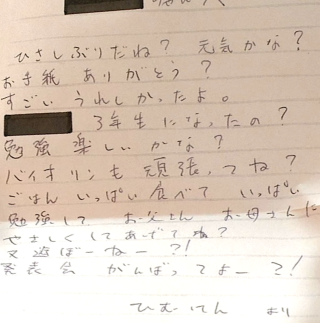 ひさしぶりだね? 元気かな?
お手紙 ありがとう?
すごい うれしかったよ。
3年生になったの?
勉強 楽しいかな?
バイオリンも 頑張ってね?
ごはん いっぱい 食べて いっぱい
勉強して お父さん お母さんに
やさしくしてあげてね?
又 遊ぼーねー?!
発表会 がんばってよー?!
ひむけん より